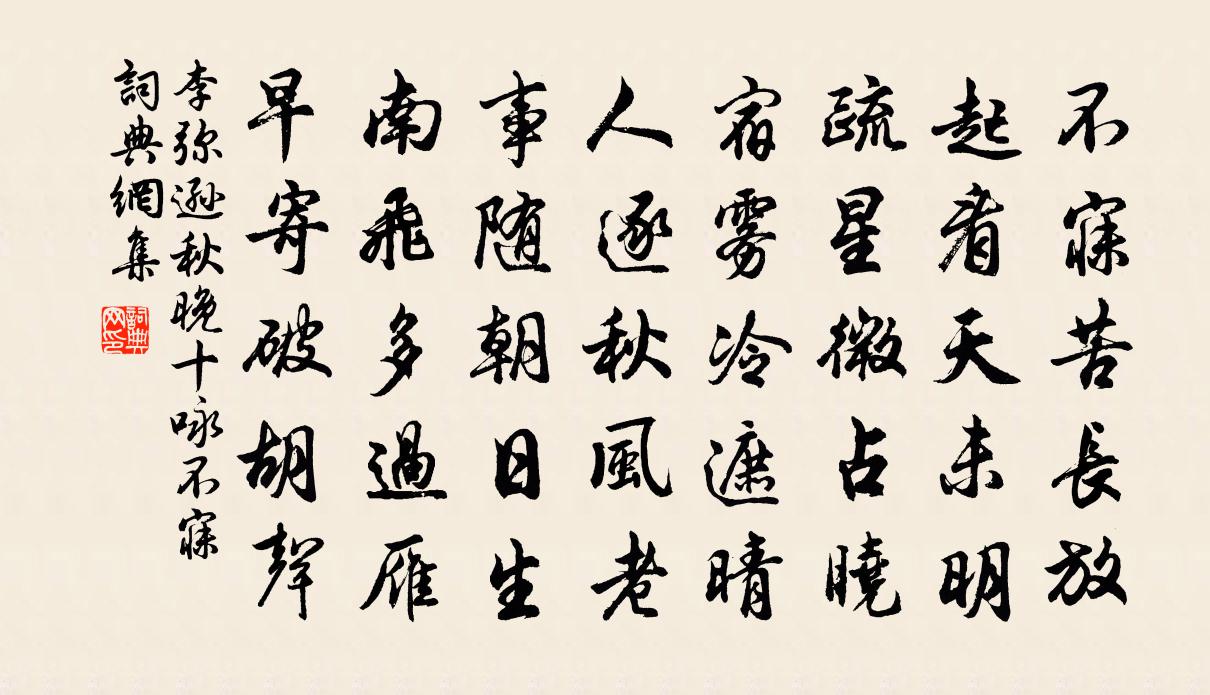 不寐苦長放
起看天未明
疏星微占曉
宿雾冷遮晴
人逐秋風老
事随朝日生
南飛多過雁
早寄破胡聲
李弥遜秋晚十咏不寐
詞典網集
詞典网印